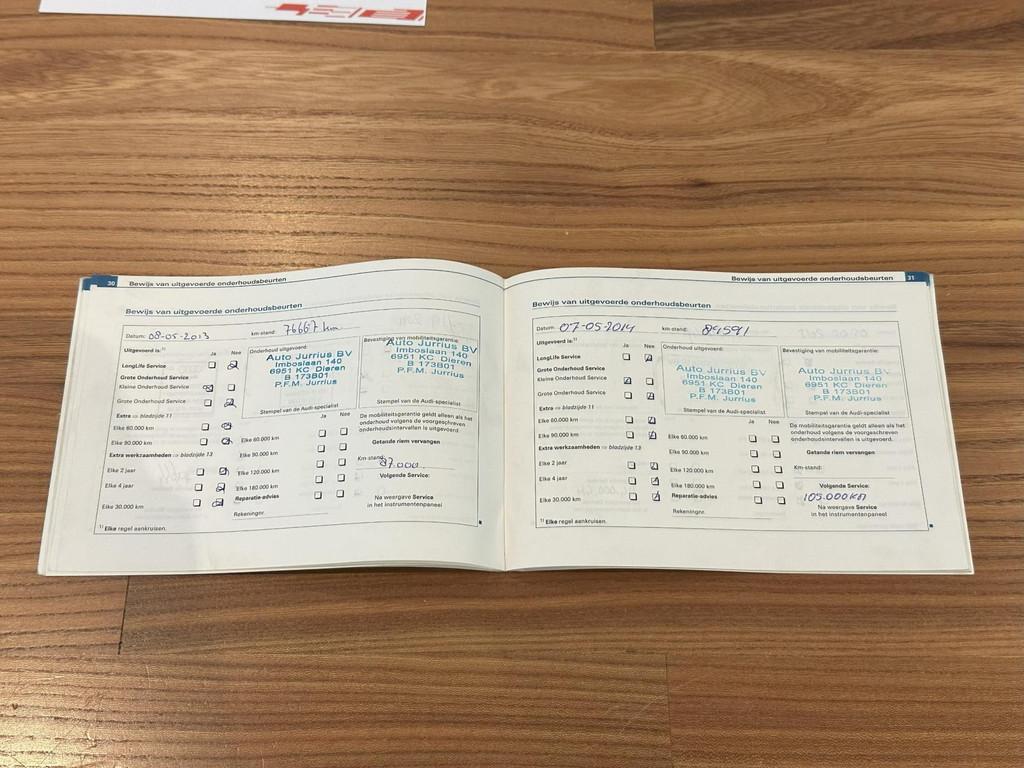 30 Bewijs van uitgevoerde onderhoudsbeurten
Bewijs van uitgevoerde onderhoudsbeurten
Datum: 08-05-2013 km-stand: 76667 km
Uitgevoerd is:¹⁾ Ja Nee
LongLife Service
Grote Onderhoud Service
Kleine Onderhoud Service
Grote Onderhoud Service
Extra ⇨ bladzijde 11
Elke 60.000 km
Elke 90.000 km
Extra werkzaamheden ⇨ bladzijde 13
Elke 2 jaar
Elke 4 jaar
Elke 30.000 km
¹⁾ Elke regel aankruisen.
Onderhoud uitgevoerd:
Auto Jurrius BV
Imboslaan 140
6951 KC Dieren
B 173B01
P.F.M. Jurrius
Stempel van de Audi-specialist
Ja Nee
Elke 60.000 km
Elke 90.000 km
Elke 120.000 km
Elke 180.000 km
Reparatie-advies
Rekeningnr.
Bevestiging van mobiliteitsgarantie:
Auto Jurrius BV
Imboslaan 140
6951 KC Dieren
B 173B01
P.F.M. Jurrius
De mobiliteitsgarantie geldt alleen als het
onderhoud volgens de voorgeschreven
onderhoudsintervallen is uitgevoerd.
Getande riem vervangen
Km-stand:
97.000
Volgende Service:
Na weergave Service
in het instrumentenpaneel
Bewijs van uitgevoerde onderhoudsbeurten 31
Bewijs van uitgevoerde onderhoudsbeurten
Datum: 07-05-2014 km-stand: 89591
Uitgevoerd is:¹⁾ Ja Nee
LongLife Service
Grote Onderhoud Service
Kleine Onderhoud Service
Grote Onderhoud Service
Extra ⇨ bladzijde 11
Elke 60.000 km
Elke 90.000 km
Extra werkzaamheden ⇨ bladzijde 13
Elke 2 jaar
Elke 4 jaar
Elke 30.000 km
¹⁾ Elke regel aankruisen.
Onderhoud uitgevoerd:
Auto Jurrius BV
Imboslaan 140
6951 KC Dieren
B 173B01
P.F.M. Jurrius
Stempel van de Audi-specialist
Ja Nee
Elke 60.000 km
Elke 90.000 km
Elke 120.000 km
Elke 180.000 km
Reparatie-advies
Rekeningnr.
Bevestiging van mobiliteitsgarantie:
Auto Jurrius BV
Imboslaan 140
6951 KC Dieren
B 173B01
P.F.M. Jurrius
Stempel van de Audi-specialist
De mobiliteitsgarantie geldt alleen als het
onderhoud volgens de voorgeschreven
onderhoudsintervallen is uitgevoerd.
Getande riem vervangen
Km-stand:
Volgende Service:
105.000KM
Na weergave Service
in het instrumentenpaneel